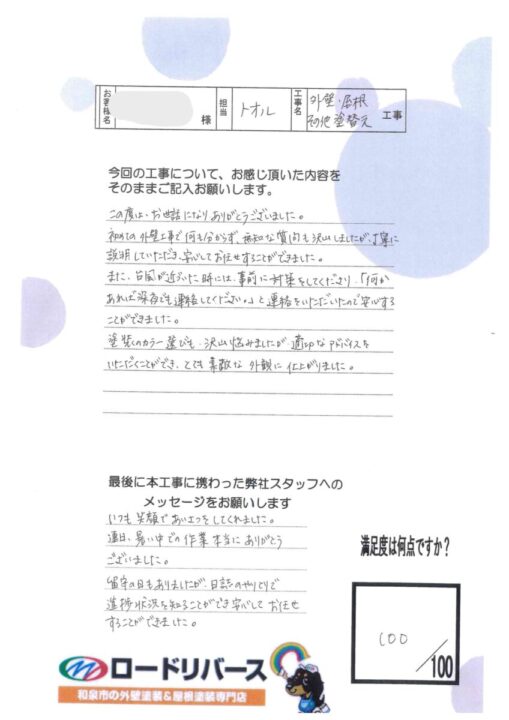 お客様名 様 担当 トオル 工事名 外壁・屋根
初他塗替え 工事
今回の工事について、お感じ頂いた内容を
そのままご記入お願いします。
この度は、お世話になりありがとうございました。
初めての外壁工事で何も分からず、無知な質問も沢山しましたが、丁寧に
説明していただき、安心してお任せすることができました。
また、台風が近づいた時には、事前に対策をしてくださり、「何か
あれば深夜でも連絡してください。」と連絡をいただいたので安心する
ことができました。
塗装のカラー選びも、沢山悩みましたが、適切なアドバイスを
いただくことができ、とても素敵な外観に仕上がりました。
最後に本工事に携わった弊社スタッフへの
メッセージをお願いします
いつも笑顔であいさつをしてくれました。
連日、暑い中での作業本当にありがとう
ございました。
留守の日もありましたが、日誌のやりとりで
進捗状況を知ることができ安心してお任せ
することができました。
満足度は何点ですか?
100
/100
ロードリバース
和泉市の外壁塗装&屋根塗装専門店